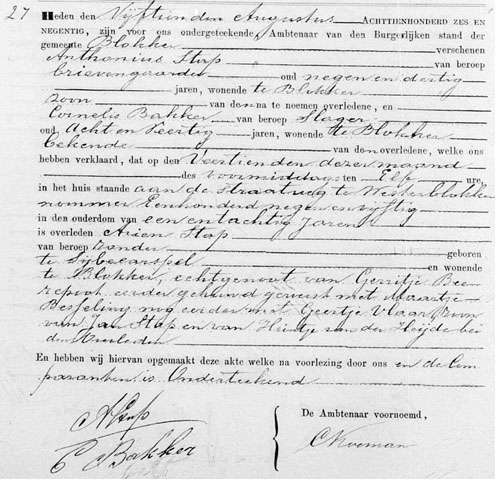 27 Heden den Vijftienden Augustus ACHTTIENHONDERD ZES EN
NEGENTIG, zijn voor ons ondergeteekende, Ambtenaar van den Burgerlijken stand der
gemeente Blokker verschenen
Anthonius Stap van beroep
brievengaarder oud negen en dertig
jaren, wonende te Blokker
zoon van den na te noemen overledene, en
Cornelis Bakker van beroep Slager
oud Acht en Veertig jaren, wonende te Blokker
bekende van den overledene, welke ons
hebben verklaard, dat op den Veertienden dezer maand
des voormiddags ten Elf ure,
in het huis staande aan de Straatweg te Westerblokker
nommer Eenhonderd negen en vijftig
in den ouderdom van een en tachtig Jaren
is overleden Arien Stap
van beroep zonder geboren
te Sijbecarspel en wonende
te Blokker, echtgenoot van Gerritje
eerder gehuwd geweest met Maartje
Besseling nog eerder met Geertje Vlaar, zoon
van Jan Stap en van Hiltje van der Heijde bei
den Overleden
En hebben wij hiervan opgemaakt deze akte welke na voorlezing door ons en de Com
paranten is Onderteekend
A Stap
C Bakker
De Ambtenaar voornoemd,
C Kooman